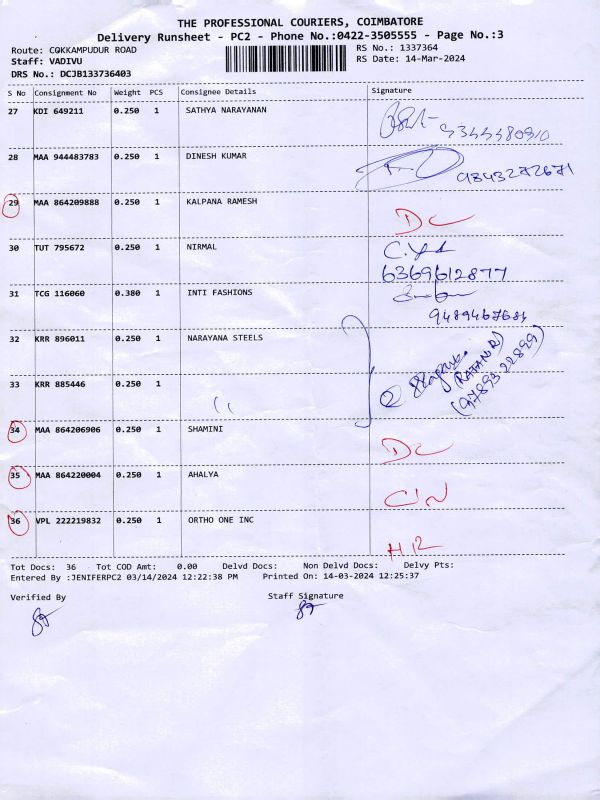 THE PROFESSIONAL COURIERS, COIMBATORE
Delivery Runsheet - PC2 - Phone No.:0422-3505555 - Page No.:3
Route: COKKAMPUDUR ROAD
RS No.: 1337364
Staff: VADIVU
RS Date: 14-Mar-2024
DRS No.: DCJB133736403
S No Consignment No Weight PCS Consignee Details Signature
27 KDI 649211 0.250 1 SATHYA NARAYANAN
28 MAA 944483783 0.250 1 DINESH KUMAR
9843272671
29 MAA 864209888 0.250 1 KALPANA RAMESH
DC
30 TUT 795672 0.250 1 NIRMAL
6369612877
31 TCG 116060 0.380 1 INTI FASHIONS
9489467684
32 KRR 896011 0.250 1 NARAYANA STEELS
(RAJAN R)
(97893 22899)
33 KRR 885446 0.250 1
34 MAA 864206906 0.250 1 SHAMINI
DC
35 MAA 864220004 0.250 1 AHALYA
C/N
36 VPL 222219832 0.250 1 ORTHO ONE INC
Tot Docs: 36 Tot COD Amt: 0.00 Delvd Docs: Non Delvd Docs: Delvy Pts:
Entered By :JENIFERPC2 03/14/2024 12:22:38 PM Printed On: 14-03-2024 12:25:37
Verified By Staff Signature